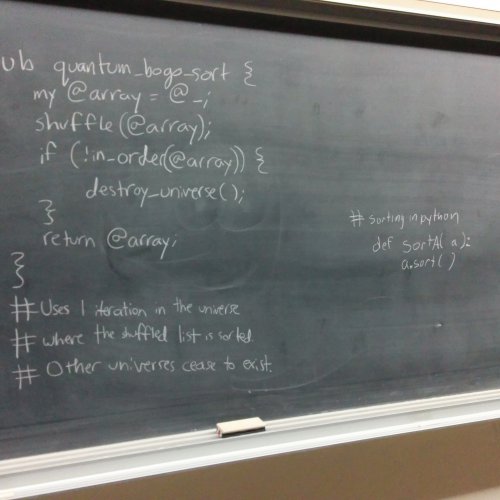 ub quantum_bogo_sort {
my @array = @_;
shuffle(@array);
if (!in_order(@array)) {
destroy_universe();
}
return @array;
}
}
# Uses 1 iteration in the universe
# where the shuffled list is sorted.
# Other universes cease to exist.
# Sorting in python
def SortA(a):
a.sort()